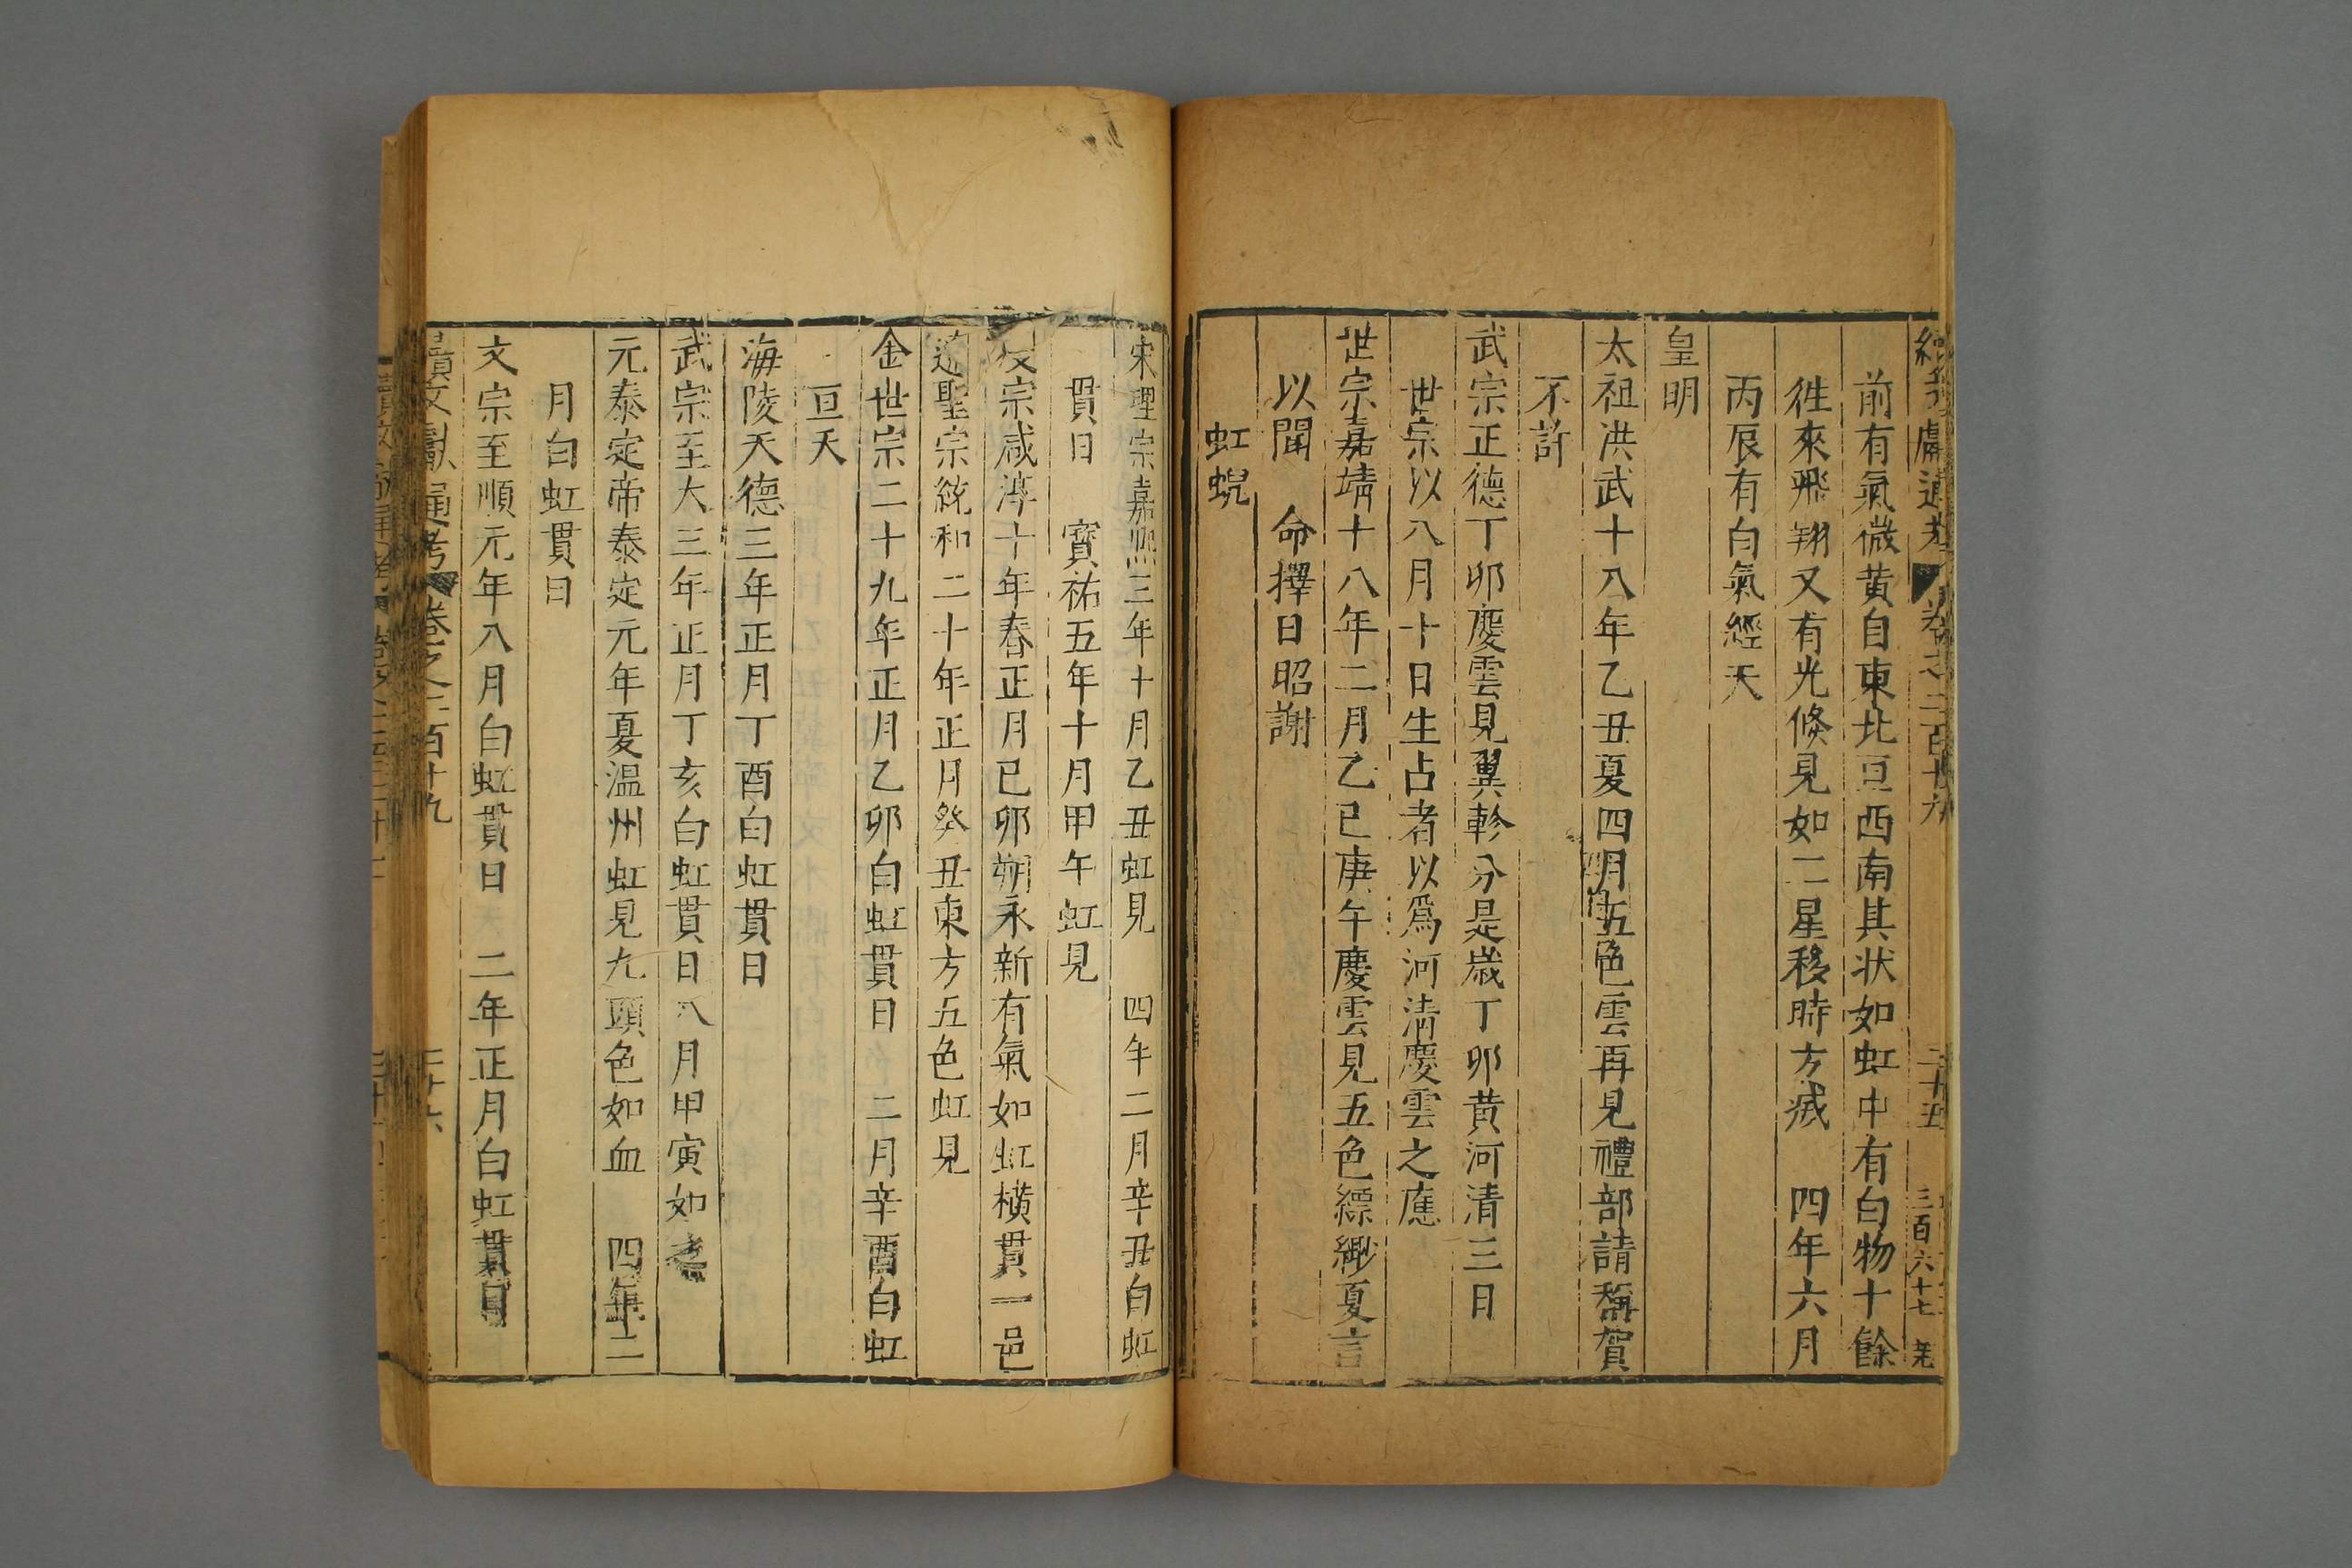 續文獻通考 卷之二百十九 二十五 三百六十七
前有氣微黃自東北亘西南其狀如虹中有白物十餘
徃來飛翔又有光倐見如二星移時方滅 四年六月
丙辰有白氣經天
皇明
太祖洪武十八年乙丑夏四月五色雲再見禮部請稱賀
不許
武宗正德丁卯慶雲見翼軫分是歲丁卯黄河清三日
世宗以八月十日生占者以爲河清慶雲之應
世宗嘉靖十八年二月乙巳庚午慶雲見五色縹緲夏言
以聞 命擇日昭謝
虹蜺
宋理宗嘉熙三年十月乙丑虹見 四年二月辛丑白虹
貫日 寳祐五年十月甲午虹見
度宗咸淳十年春正月已卯朔永新有氣如虹横貫一邑
遼聖宗統和二十年正月癸丑東方五色虹見
金世宗二十九年正月乙卯白虹貫日 二月辛酉白虹
亘天
海陵天德三年正月丁酉白虹貫日
武宗至大三年正月丁亥白虹貫日八月甲寅如之
元泰定帝泰定元年夏温州虹見九頭色如血 四年二
月白虹貫日
文宗至順元年八月白虹貫日 二年正月白虹貫日
續文獻通考 卷之二百十九 二十六